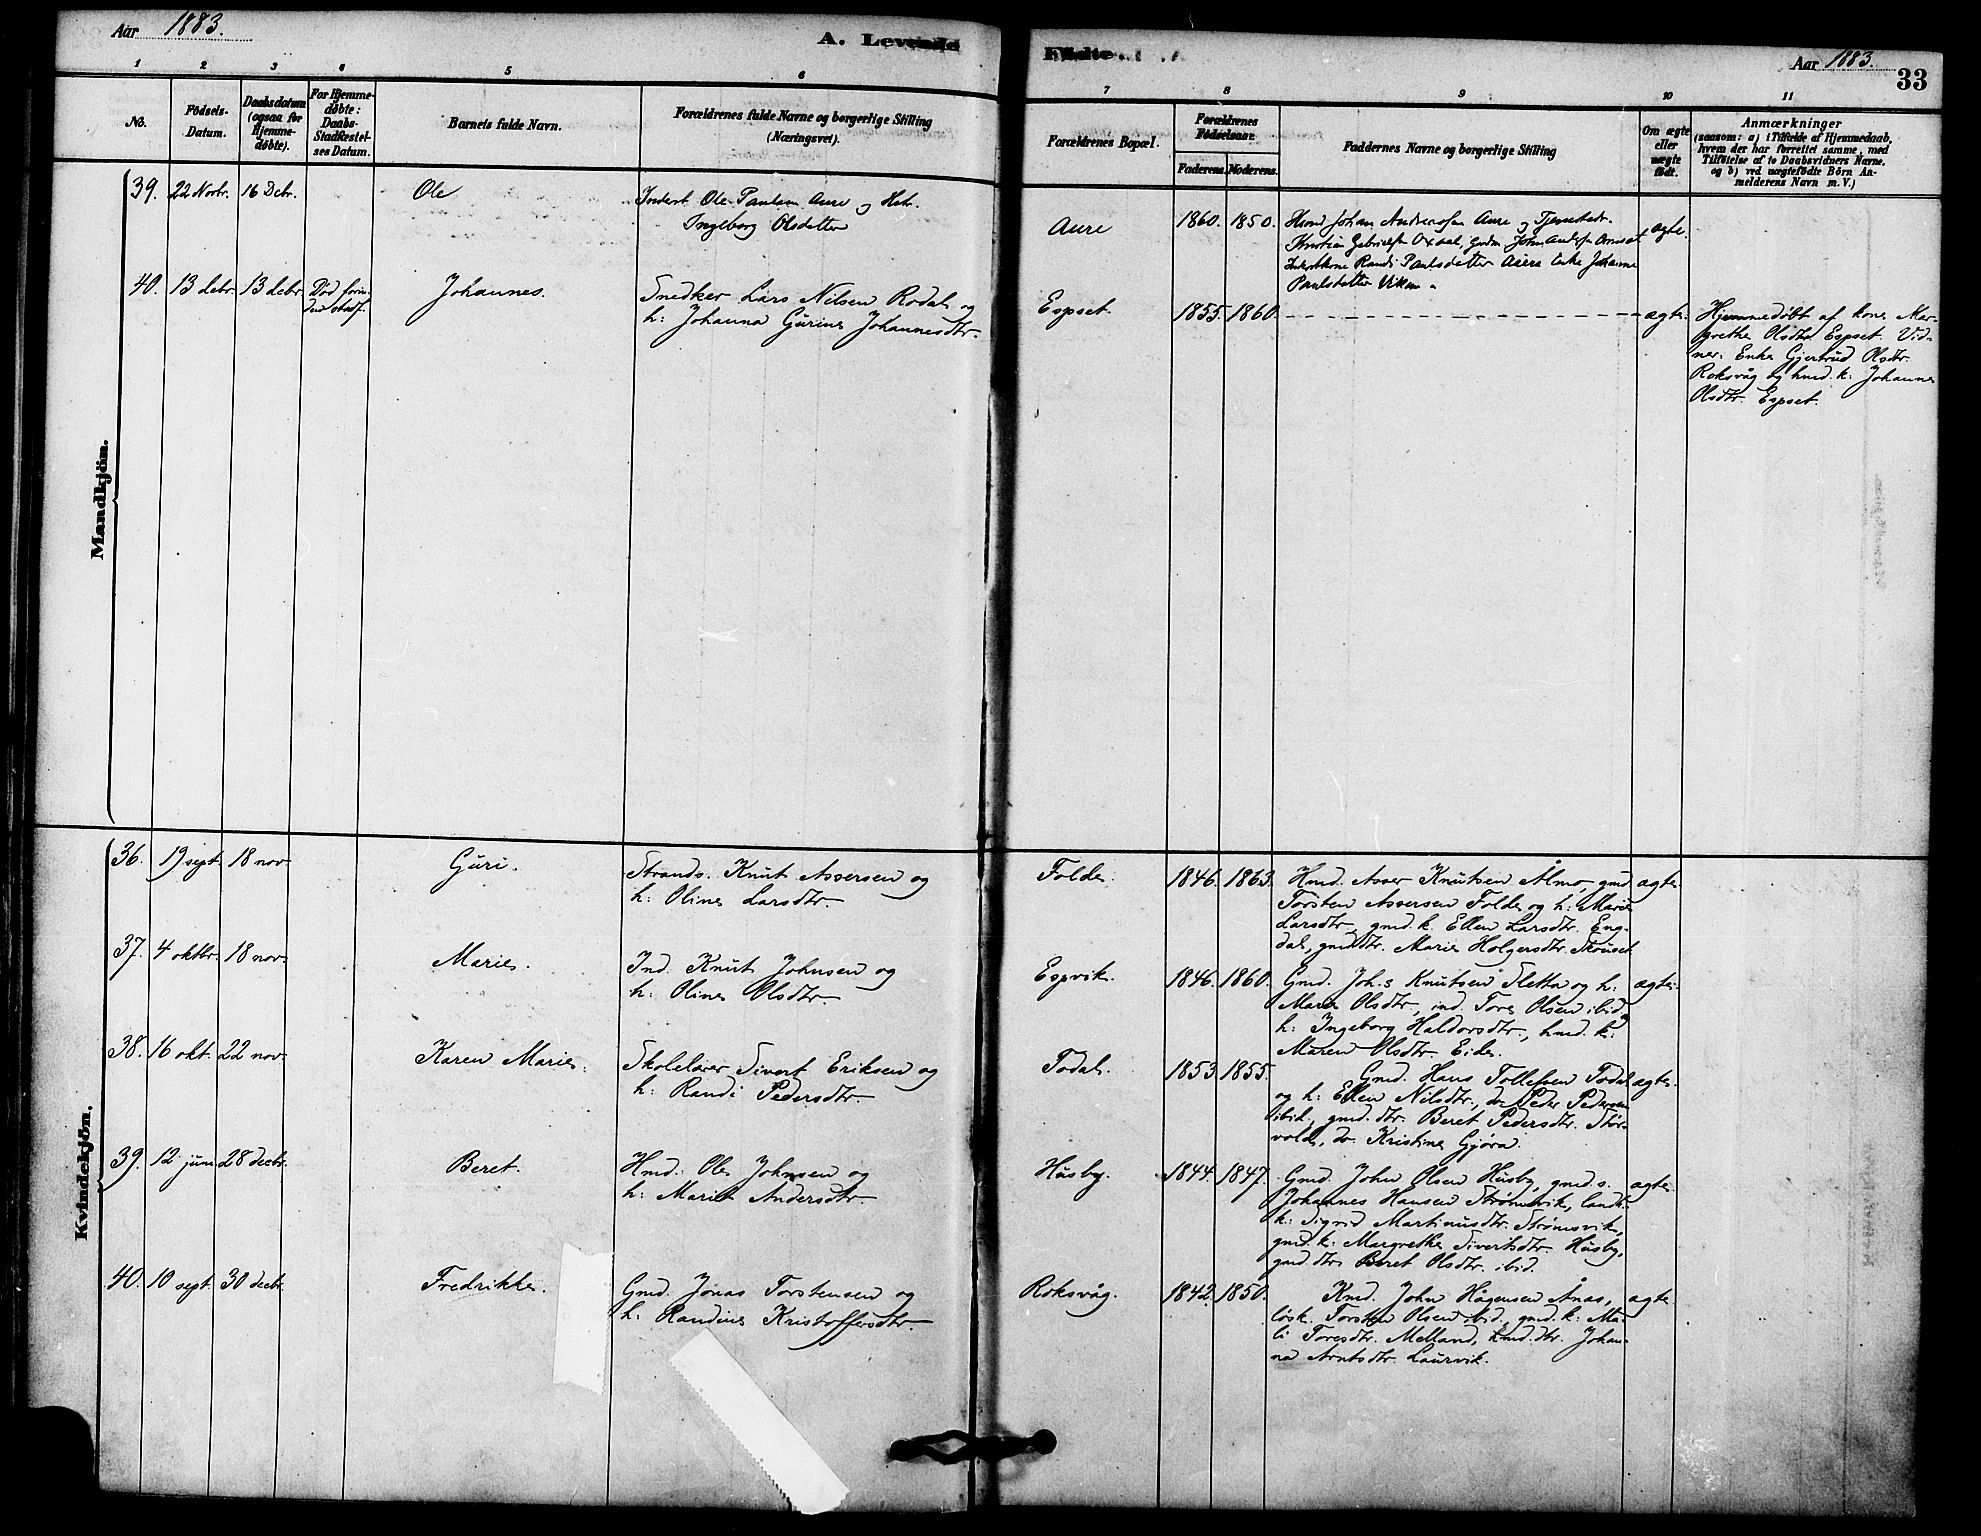 Aar 1883.
A. Levende
Fødte.
Aar 1883.
33
1 2 3 4 5 6
7 8 9 10 11
No.
Fødsels-
Datum.
Daabsdatum
(ogsaa for
Hjemme-
døbte).
For Hjemme-
døbte:
Daabs-
Stadfæstel-
ses Datum.
Barnets fulde Navn.
Forældrenes fulde Navne og borgerlige Stilling
(Næringsvei).
Forældrenes Bopæl.
Forældrenes
Fødselsaar.
Faderens. Moderens.
Faddernes Navne og borgerlige Stilling
Om ægte
eller
uægte
født.
Anmærkninger
(saasom: a) i Tilfælde af Hjemmedaab,
hvem der har forrettet samme, med
Tilføielse af to Daabsvidners Navne,
og b) ved uægtefødte Børn An-
melderens Navn m. V.)
Mandkjön.
39. 22 Novbr. 16 Debr.
Ole
Inderst Ole Paulsen Aure og Hst.
Ingeborg Olsdatter
Aure
1860. 1850.
Johan Andersen Aure og
Randi Paulsdatter Aure Enke Johanne
Paulsdatter Viken.
ægte.
40. 13 debr. 13 debr.
Død forin-
den stadf.
Johannes.
Snedker Lars Nilsen Rodal og
h: Johanna Gurine Johannesdtr.
Espset.
1855. 1860.
ægte.
Hjemmedøbt af kone Mar-
grethe Olsdtr Espset. Vid-
ner: Enke Gjertrud Olsdtr.
Roksvåg og hmd. k: Johanne
Olsdtr. Espset.
Kvindekjön.
36. 19 sept. 18 nov.
Guri.
Strands. Knut Assersen og
h: Oline Larsdtr.
Folde.
1846. 1863.
Hmd. Asser Knutsen Ålmo, gmd.
Torsten Assersen Folde og h: Marie
Larsdtr., gmd. k. Ellen Larsdtr. Eng-
dal, gmd. dtr. Marie Holgersdtr.
ægte.
37. 4 oktbr. 18 nov.
Marie.
Ind. Knut Johnsen og
h: Oline Olsdtr.
Espvik.
1846. 1860.
Gmd. Joh.s Knutsen Sletta og h:
Marie Olsdtr., ind. Tore Olsen ibid.,
h: Ingeborg Haldorsdtr., hmd. k:
Maren Olsdtr. Eide.
ægte.
38. 16 okt. 22 nov.
Karen Marie.
Skolelærer Sivert Eriksen og
h: Randi Pedersdtr.
Todal.
1853. 1855.
Gmd. Hans Tollefsen Todal
og h: Ellen Nilsdtr., do Peder Pedersen
ibid., gmd. dtr. Beret Pedersdtr. Stor-
vold, do. Kristine Gjøra.
ægte.
39. 12 juni 28 decbr.
Beret.
Hmd. Ole Johnsen og
h: Marit Andersdtr.
Husby.
1844. 1847.
Gmd. John Olsen Husby, gmd. s.
Johannes Hansen Strømsvik, landh.
k: Sigrid Martinusdtr. Strømsvik,
gmd. k: Margrethe Sivertsdtr. Husby,
gmd. dtr. Beret Olsdtr. ibid.
ægte.
40. 10 sept. 30 decbr.
Fredrikke.
Gmd. Jonas Torstensen og
h: Randine Kristoffersdtr.
Roksvåg.
1842. 1850.
Kmd. John Hågensen Ånas,
løsk. Torsten Olsen ibid., gmd. k: Ma-
li Toresdtr. Melland, hmd. dtr. Johan-
na Arntsdtr. Laurvik.
ægte